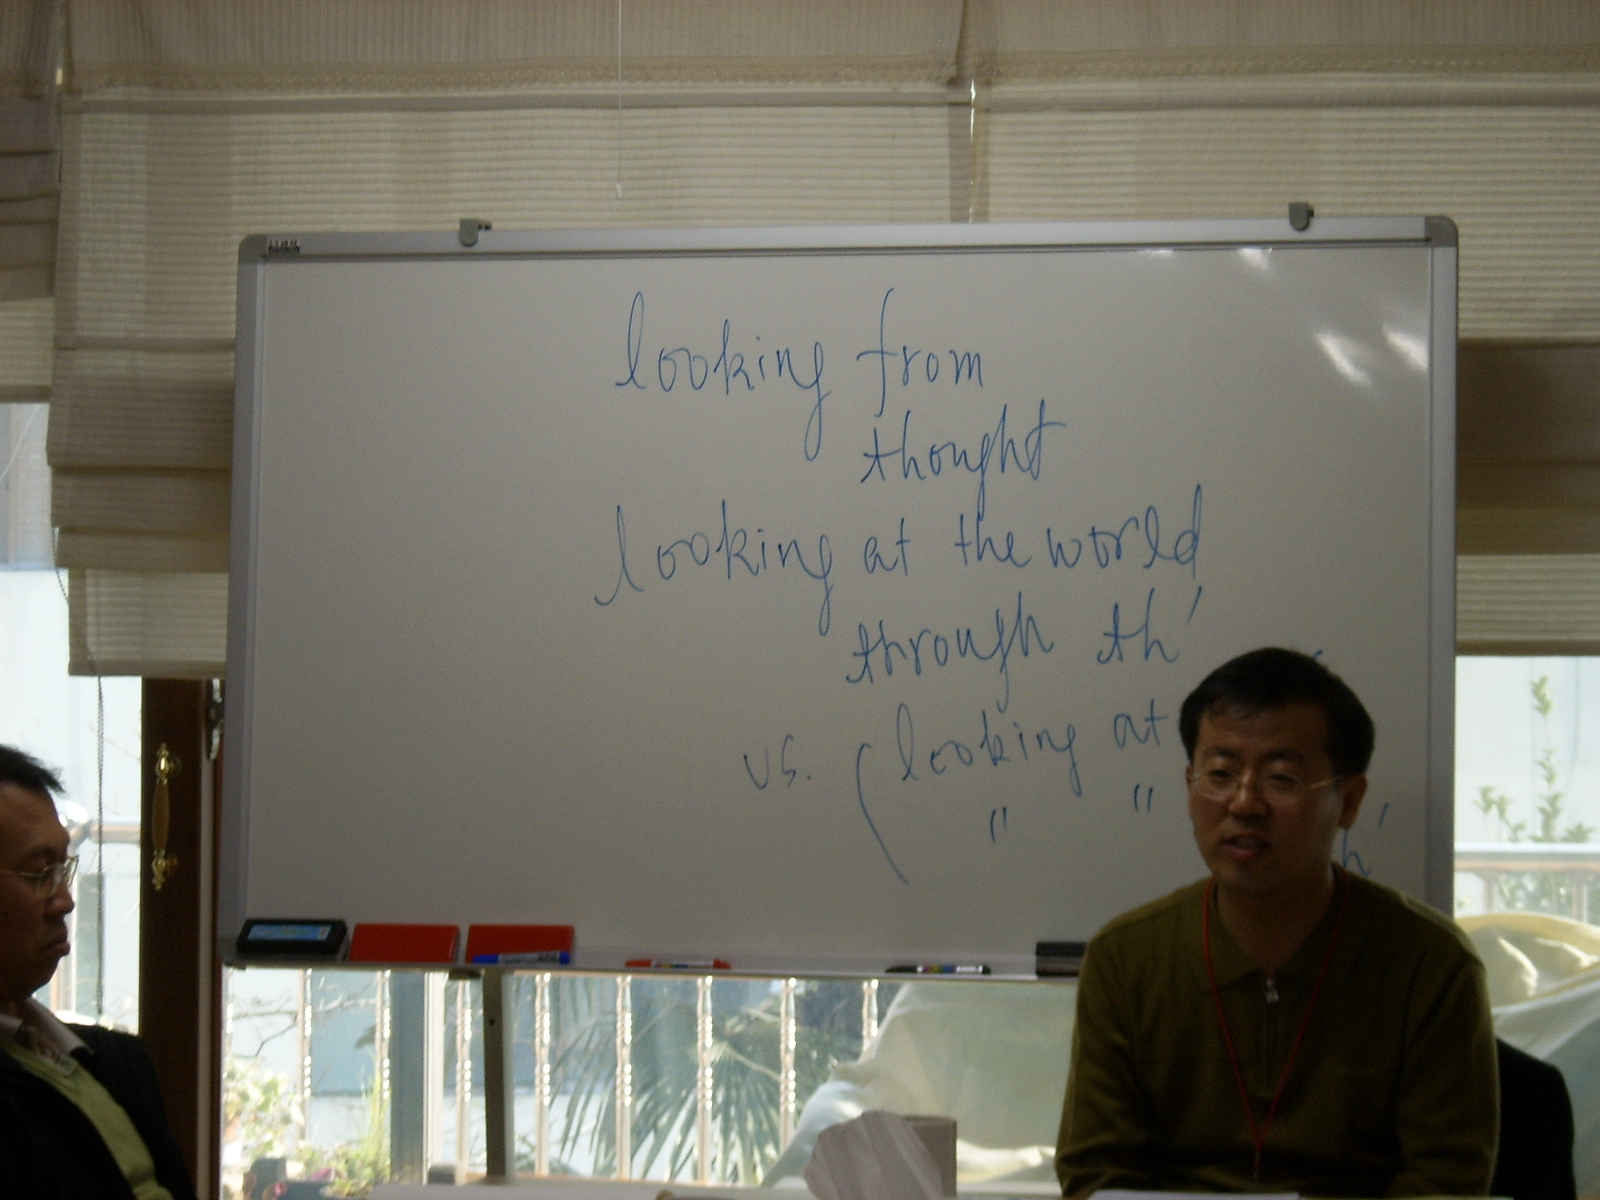 looking from
thought
looking at the world
through th'
vs. ( looking at
" " h'